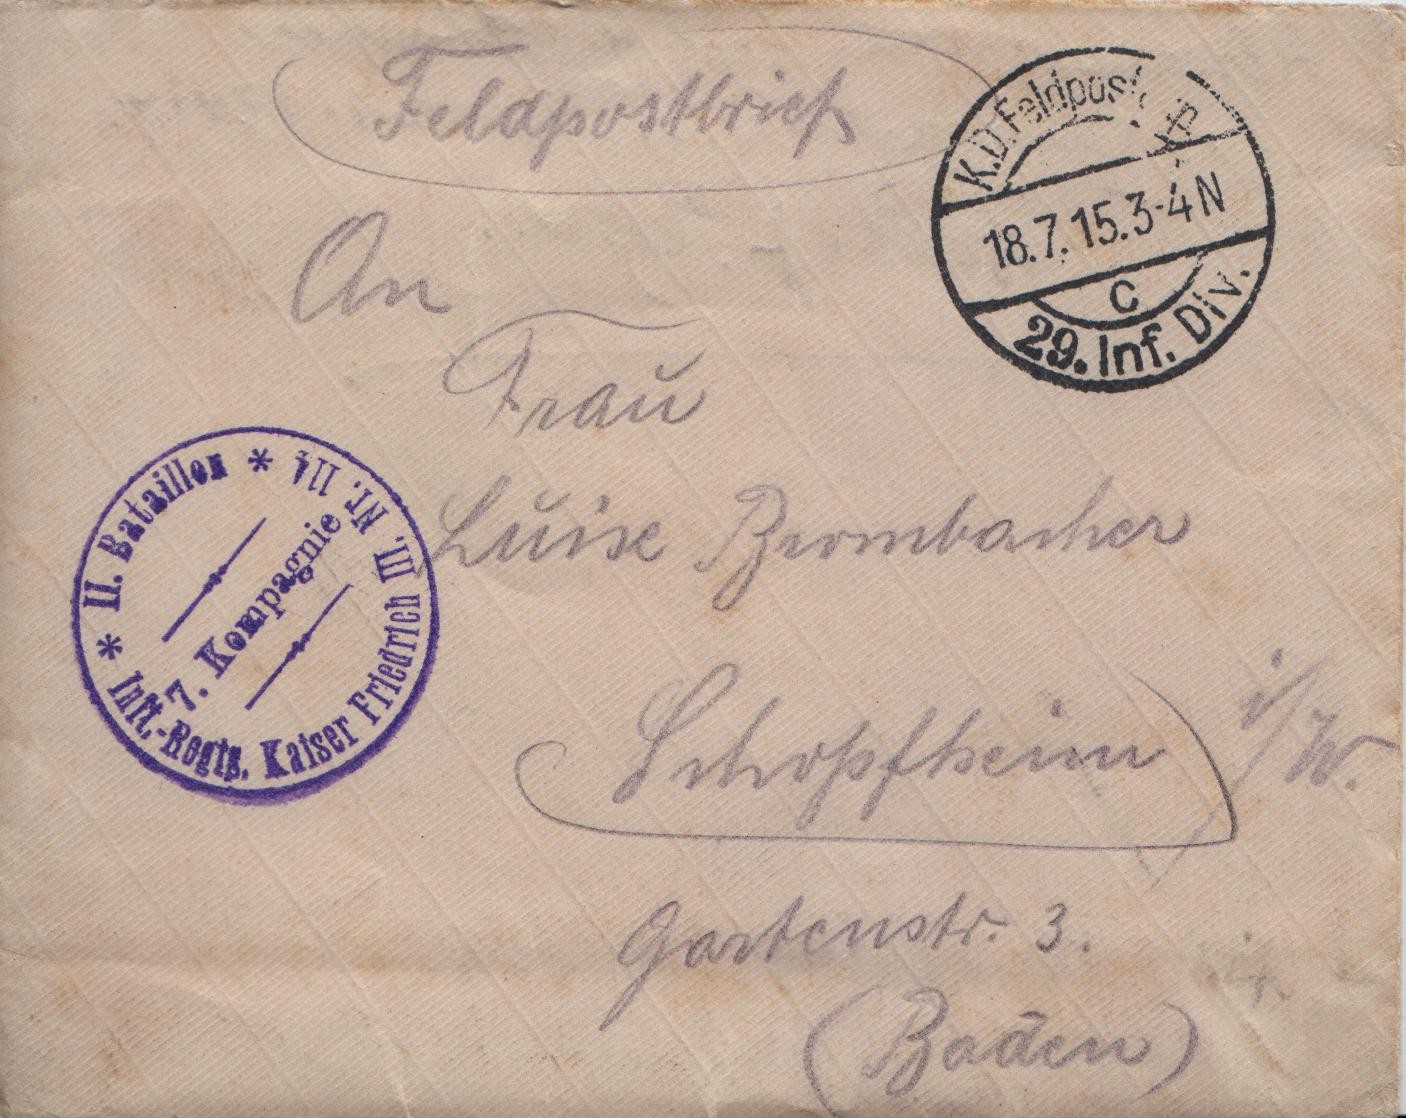 Feldpostbrief
K.D. Feldpost
18.7.15.3-4N
c
29. Inf. Div.
An
Frau
Luise Brombacher
Schopfheim i/W.
Gartenstr. 3.
(Baden)
* II. Bataillon *
7. Kompagnie
Inft.-Regts. Kaiser Friedrich III. Nr. 114